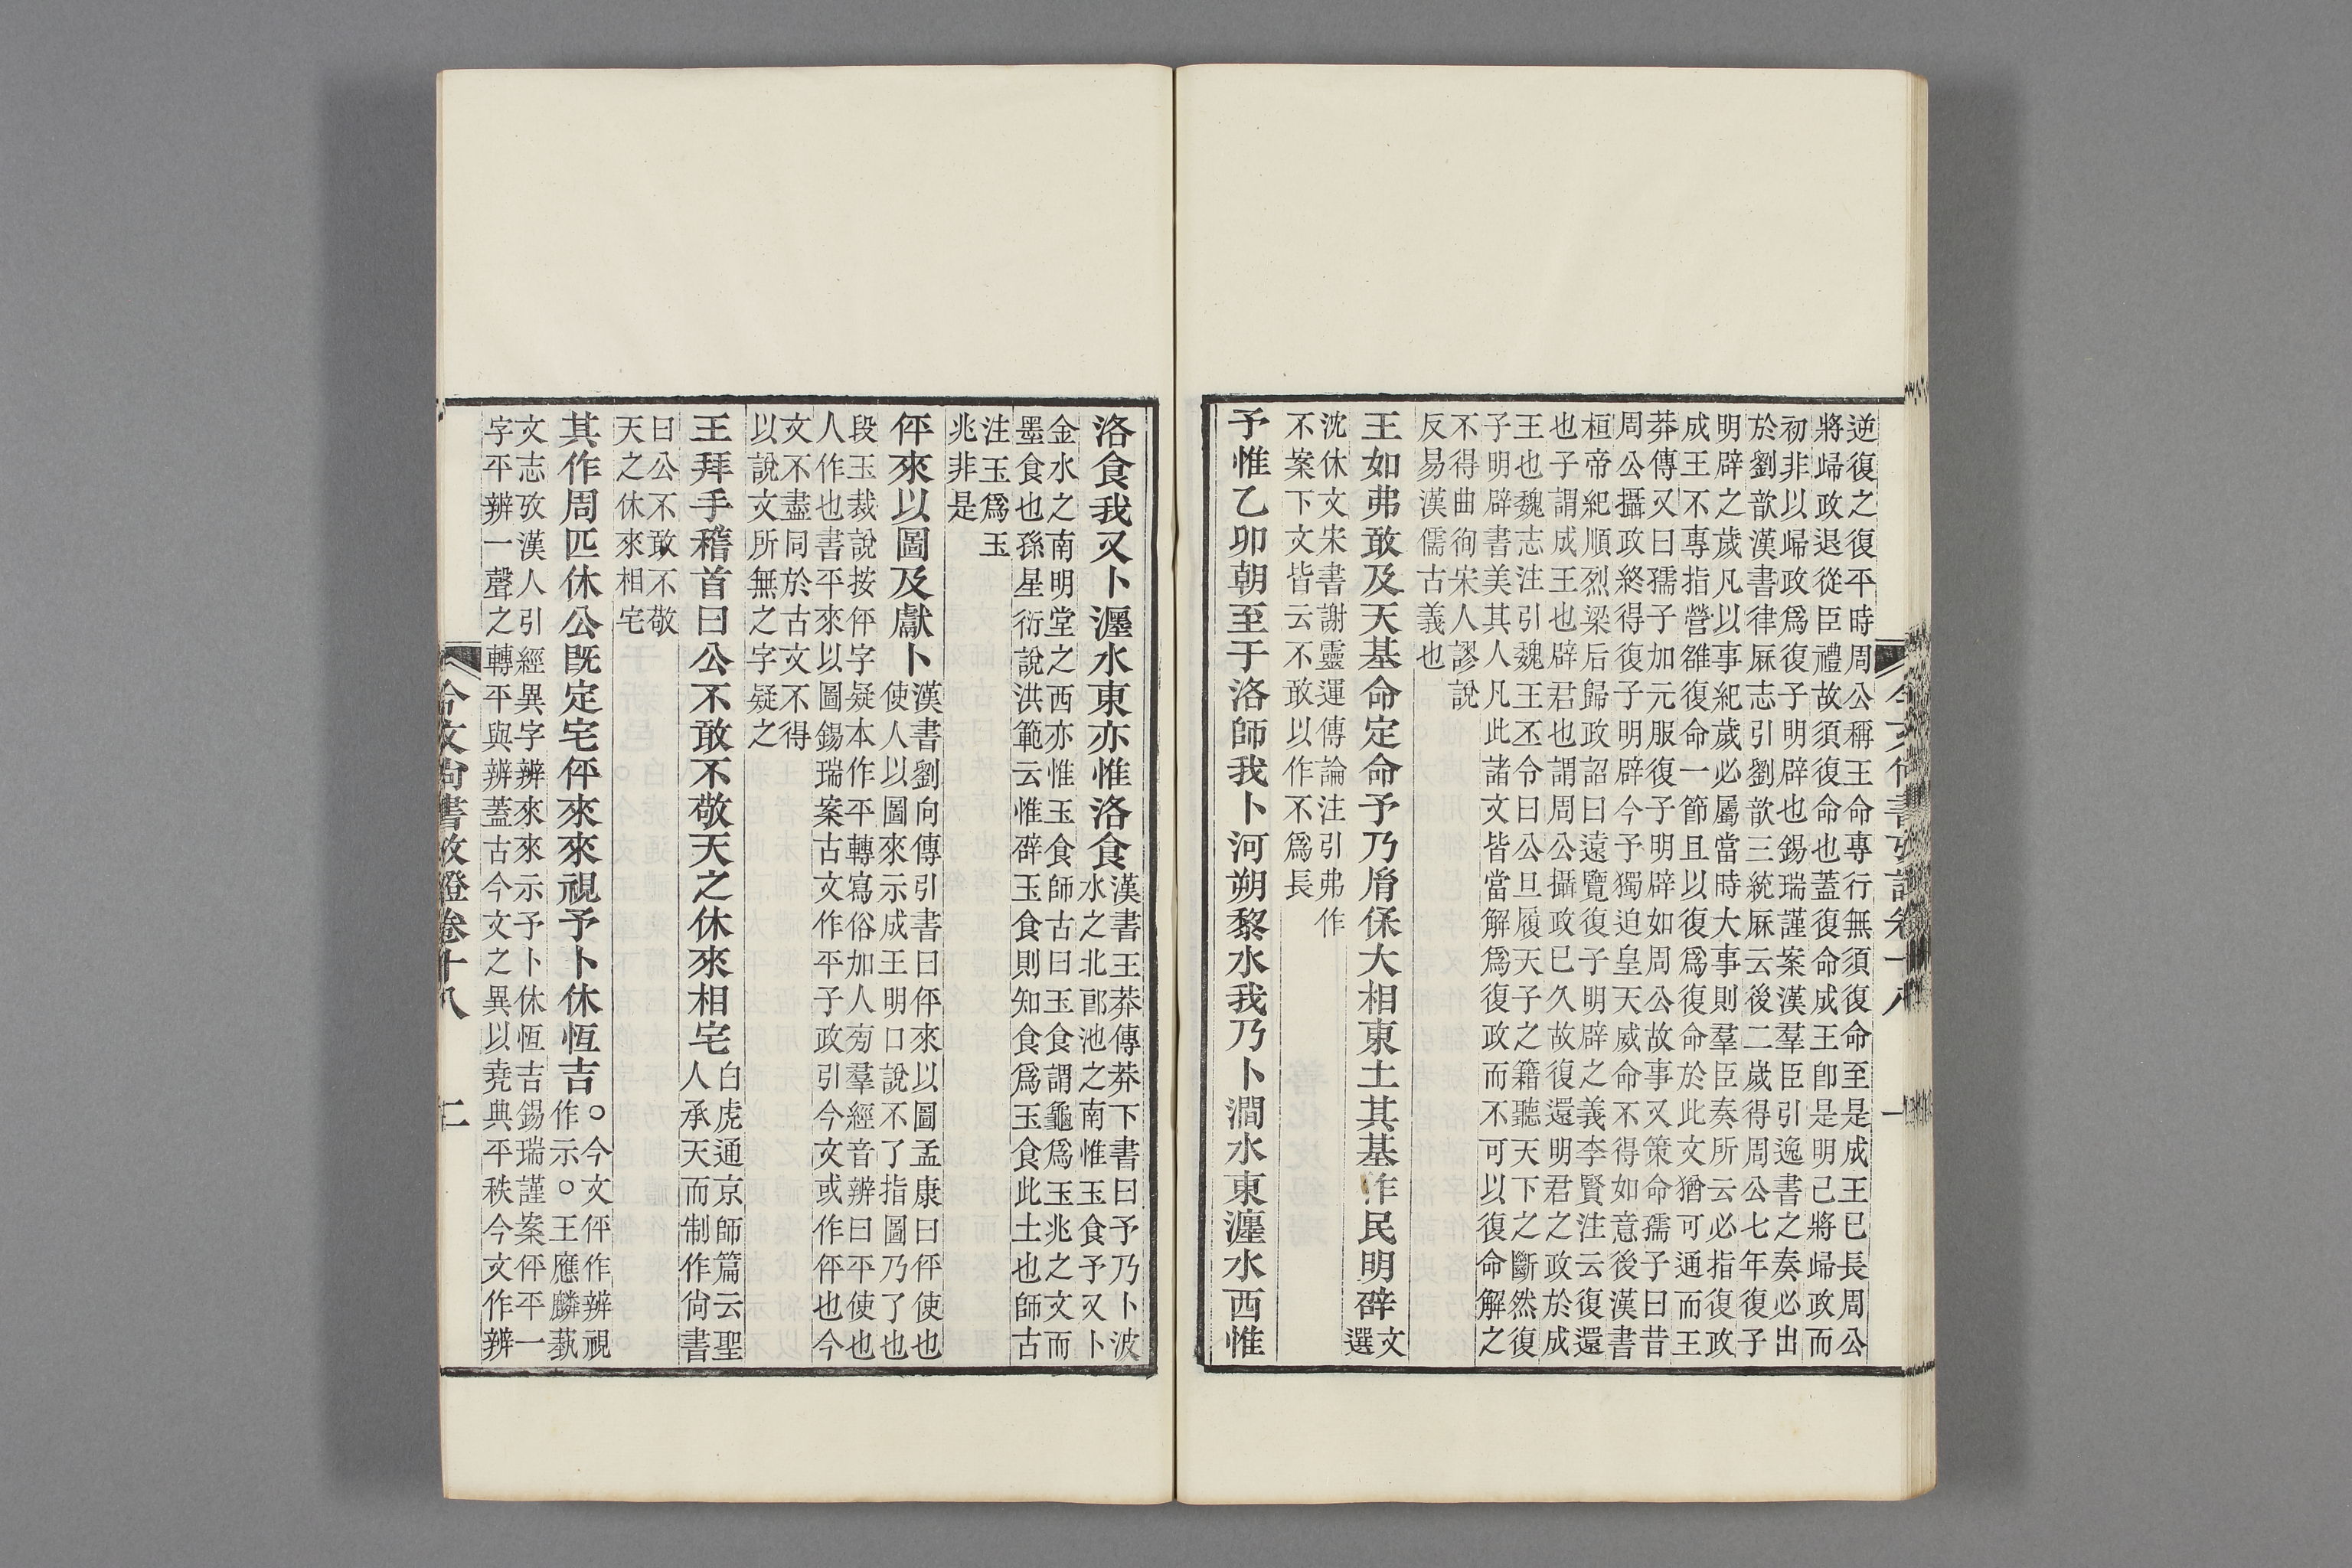 逆復之復平時周公稱王命專行無須復命至是成王已長周公
將歸政退從臣禮故須復命也蓋復命成王卽是明己將歸政而
初非以歸政爲復子明辟也錫瑞謹案漢羣臣引逸書之奏必出
於劉歆漢書律厤志引劉歆三統厤云後二歲得周公七年復子
明辟之歲凡以事紀歲必屬當時大事則羣臣奏所云必指復政
成王不專指營雒復命一節且以復爲復命於此文猶可通而王
莽傳又曰孺子加元服復子明辟如周公故事又策命孺子曰昔
周公攝政終得復子明辟今予獨迫皇天威命不得如意後漢書
桓帝紀順烈梁后歸政詔曰遠覽復子明辟之義李賢注云復還
也子謂成王也辟君也謂周公攝政已久故復還明君之政於成
王也魏志注引魏王丕令曰公旦履天子之籍聽天下之斷然復
子明辟書美其人凡此諸文皆當解爲復政而不可以復命解之
不得曲徇宋人謬說
反易漢儒古義也
王如弗敢及天基命定命予乃㣧保大相東土其基作民明辟文
選
沈休文宋書謝靈運傳論注引弗作
不案下文皆云不敢以作不爲長
予惟乙卯朝至于洛師我卜河朔黎水我乃卜澗水東瀍水西惟
今文尙書攷證卷十八
一
洛食我又卜瀍水東亦惟洛食漢書王莽傳莽下書曰予乃卜波
水之北郎池之南惟玉食予又卜
金水之南明堂之西亦惟玉食師古曰玉食謂龜爲玉兆之文而
墨食也孫星衍說洪範云惟辟玉食則知食爲玉食此土也師古
注玉爲玉
兆非是
伻來以圖及獻卜漢書劉向傳引書曰伻來以圖孟康曰伻使也
使人以圖來示成王明口說不了指圖乃了也
段玉裁說按伻字疑本作平轉寫俗加人旁羣經音辨曰平使也
人作也書平來以圖錫瑞案古文作平子政引今文或作伻也今
文不盡同於古文不得
以說文所無之字疑之
王拜手稽首曰公不敢不敬天之休來相宅白虎通京師篇云聖
人承天而制作尙書
曰公不敢不敬
天之休來相宅
其作周匹休公旣定宅伻來來視予卜休恆吉。今文伻作辨視
作示。王應麟蓺
文志攷漢人引經異字辨來來示予卜休恆吉錫瑞謹案伻平一
字平辨一聲之轉平與辨蓋古今文之異以堯典平秩今文作辨
今文尙書攷證卷十八
二